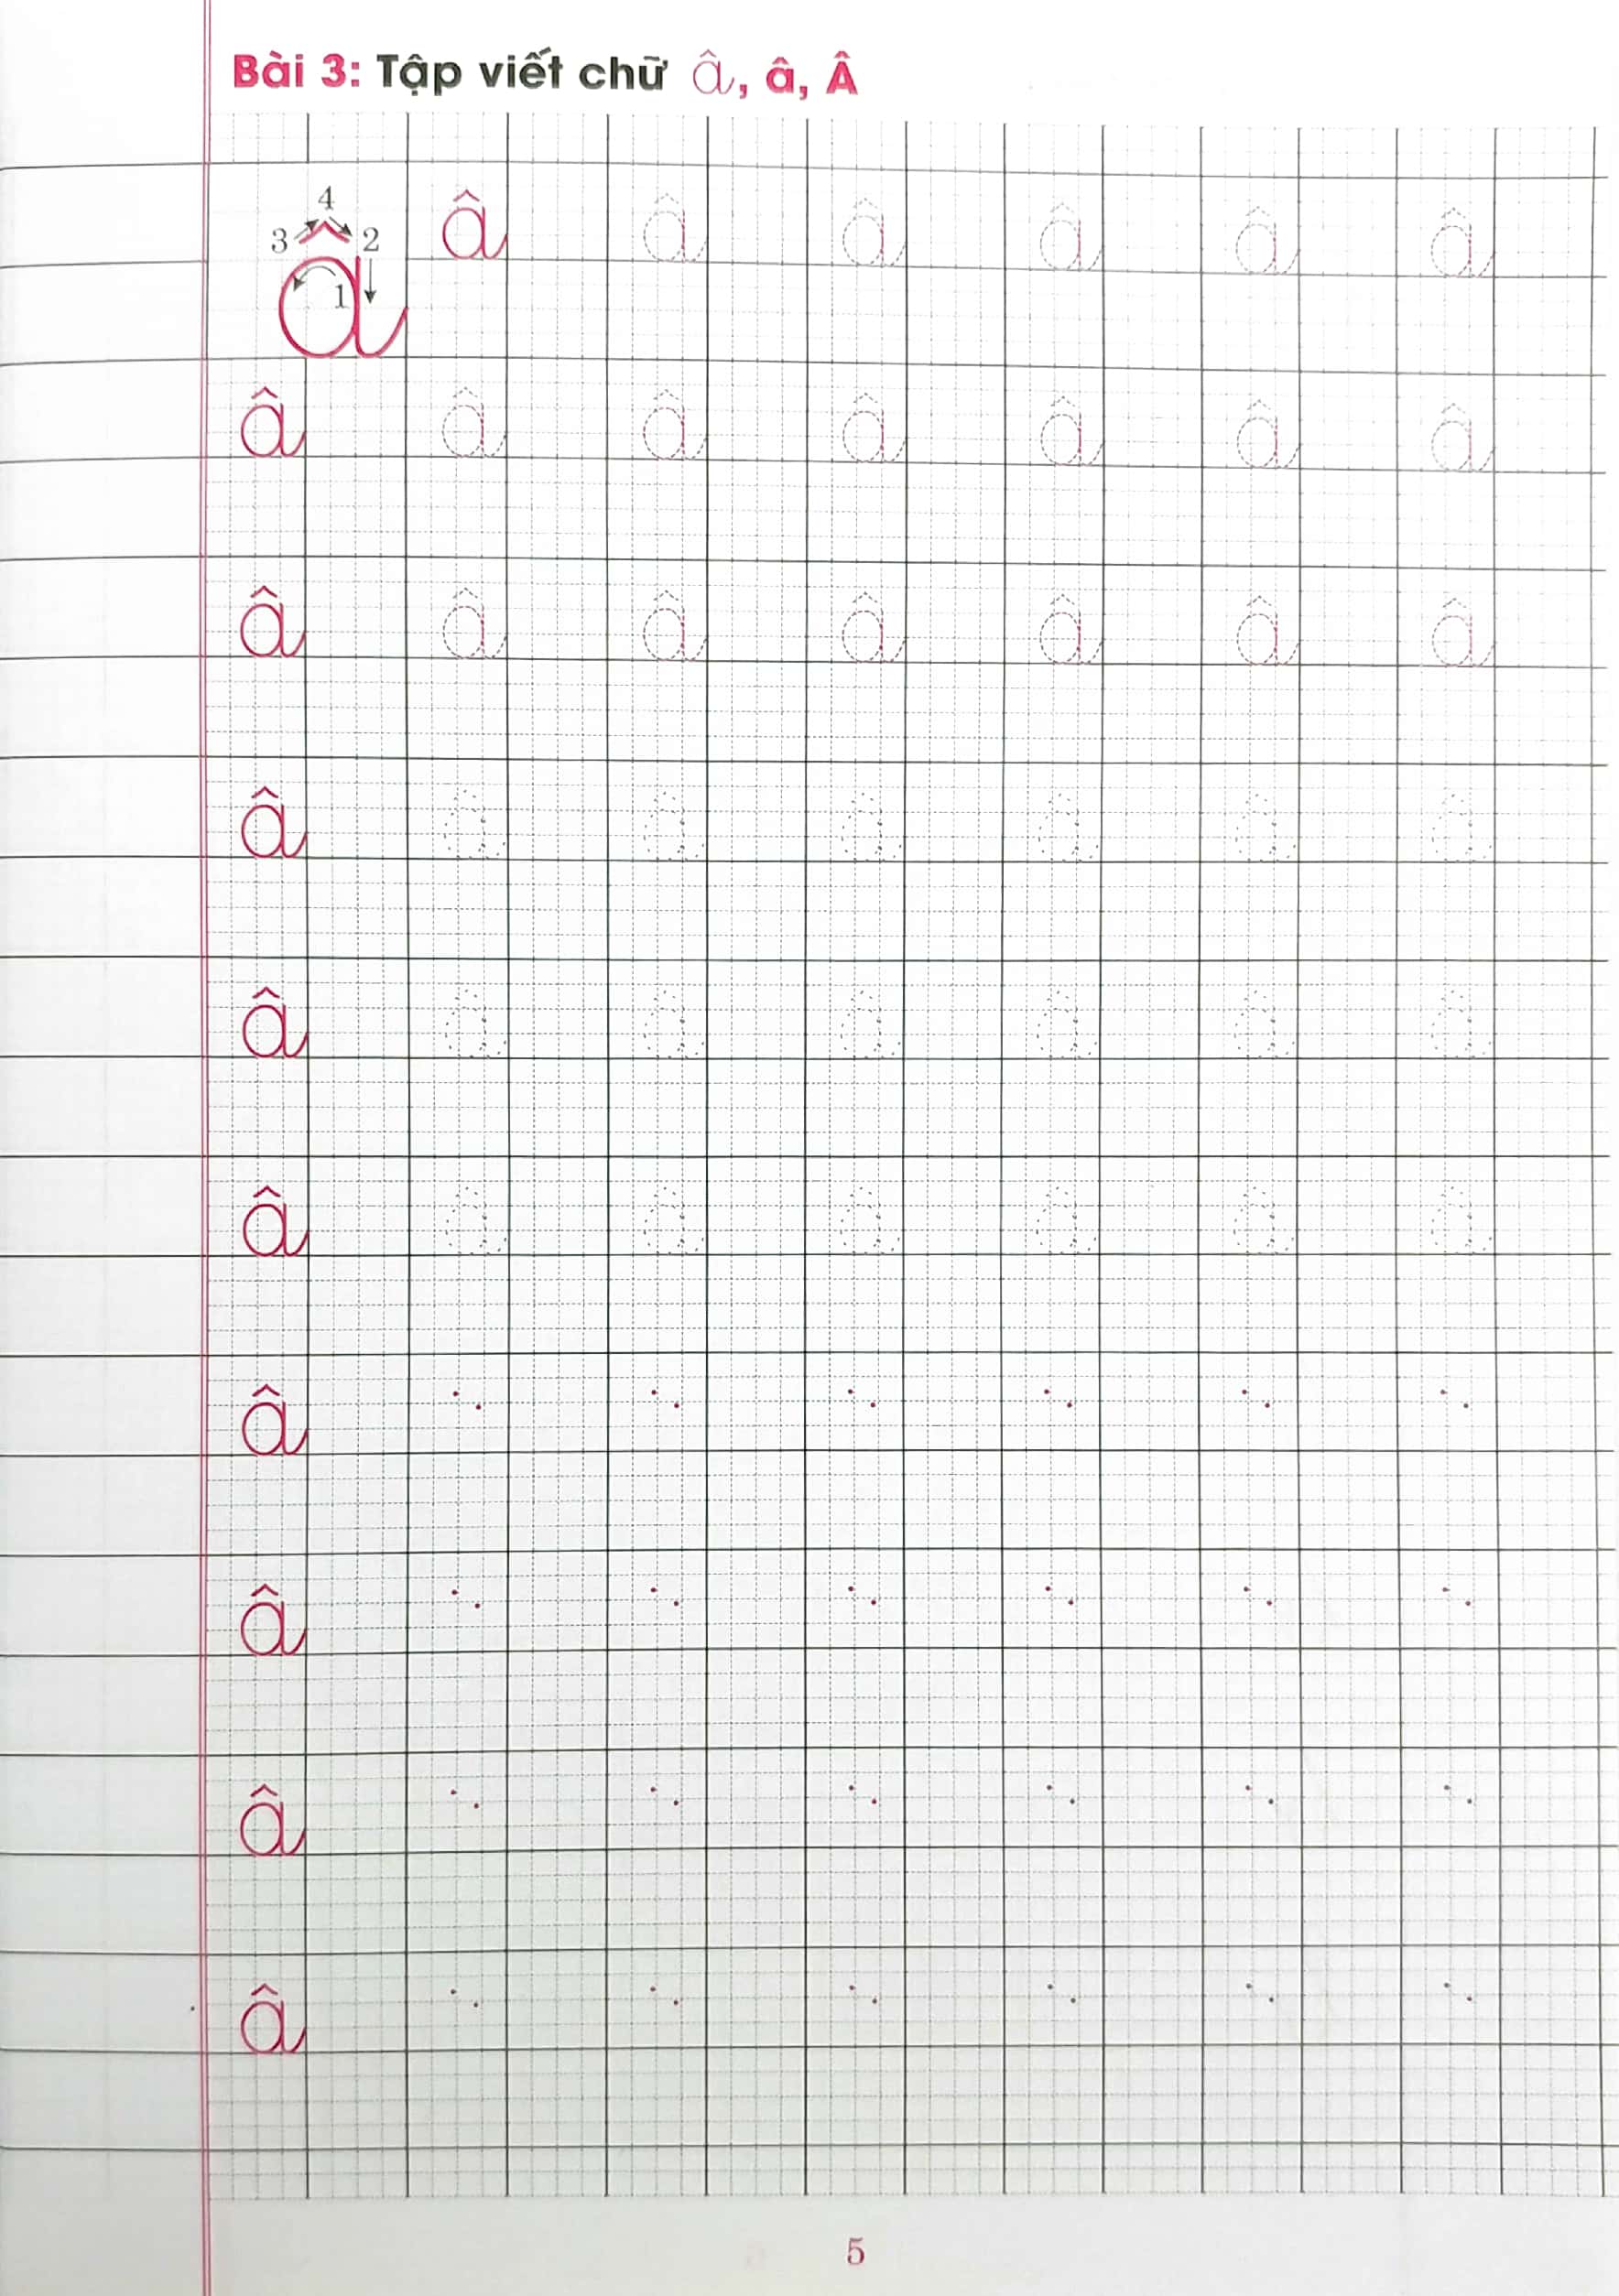 Bài 3: Tập viết chữ â, â, Â
4
3 2
1
â â â â â â â
â â â â â â â
â â â â â â â
â â â â â â â
â â â â â â â
â â â â â â â
â
â
â
â
5